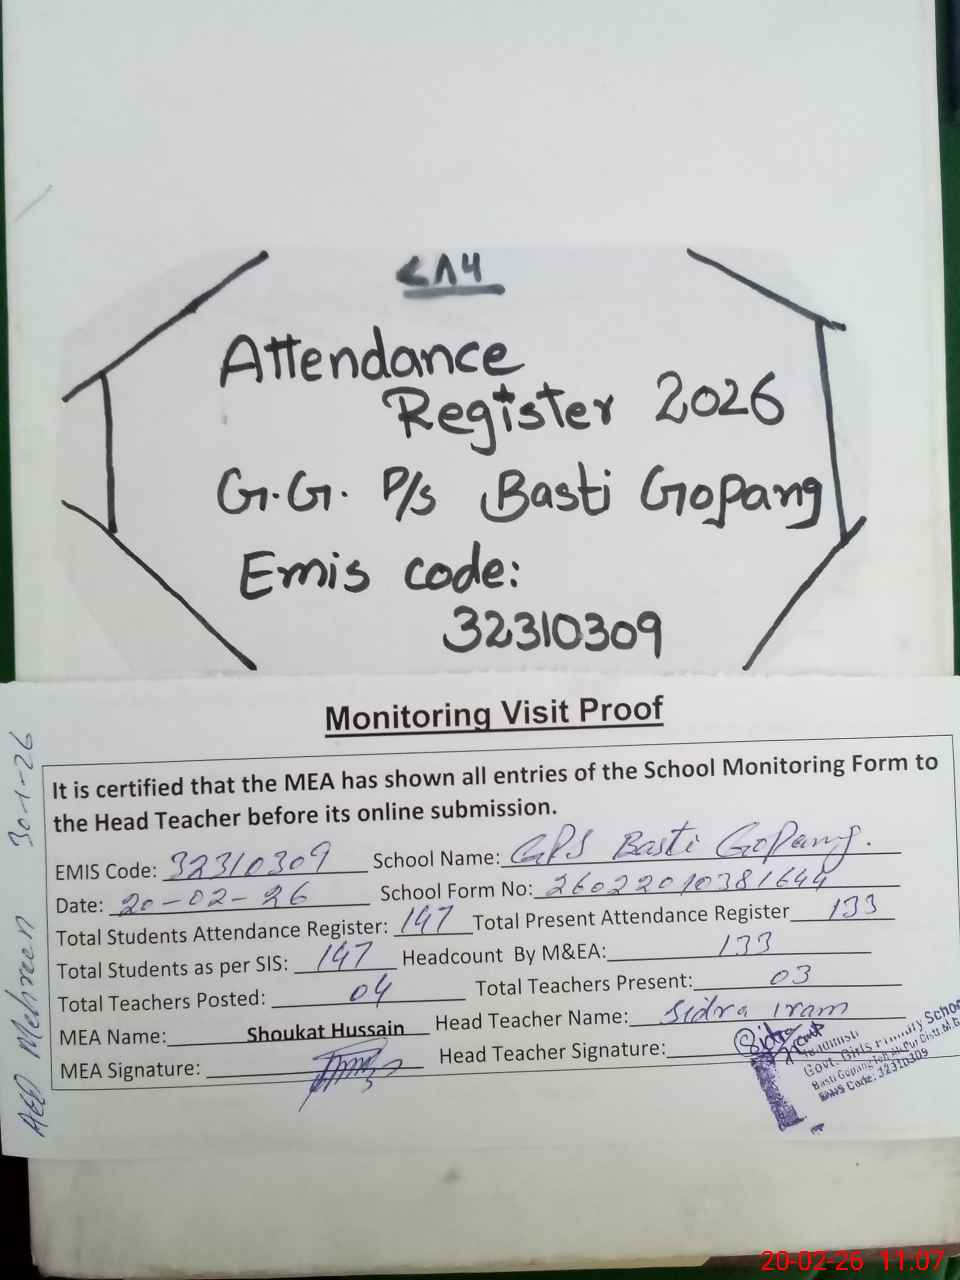 Attendance
Register 2026
G.G. P/s Basti Gopang
Emis code:
32310309
Monitoring Visit Proof
It is certified that the MEA has shown all entries of the School Monitoring Form to
the Head Teacher before its online submission.
EMIS Code: 32310309 School Name: GPS Basti Gopang.
Date: 20-02-26 School Form No: 26022010381644
Total Students Attendance Register: 147 Total Present Attendance Register 133
Total Students as per SIS: 147 Headcount By M&EA: 133
Total Teachers Posted: 04 Total Teachers Present: 03
MEA Name: Shoukat Hussain Head Teacher Name: Sidra Iram
MEA Signature: Head Teacher Signature:
Sidra
Govt. Girls Primary School
Basti Gopang
EMIS Code: 32310309
AEO Mehreen 30-1-26
20-02-26 11:07